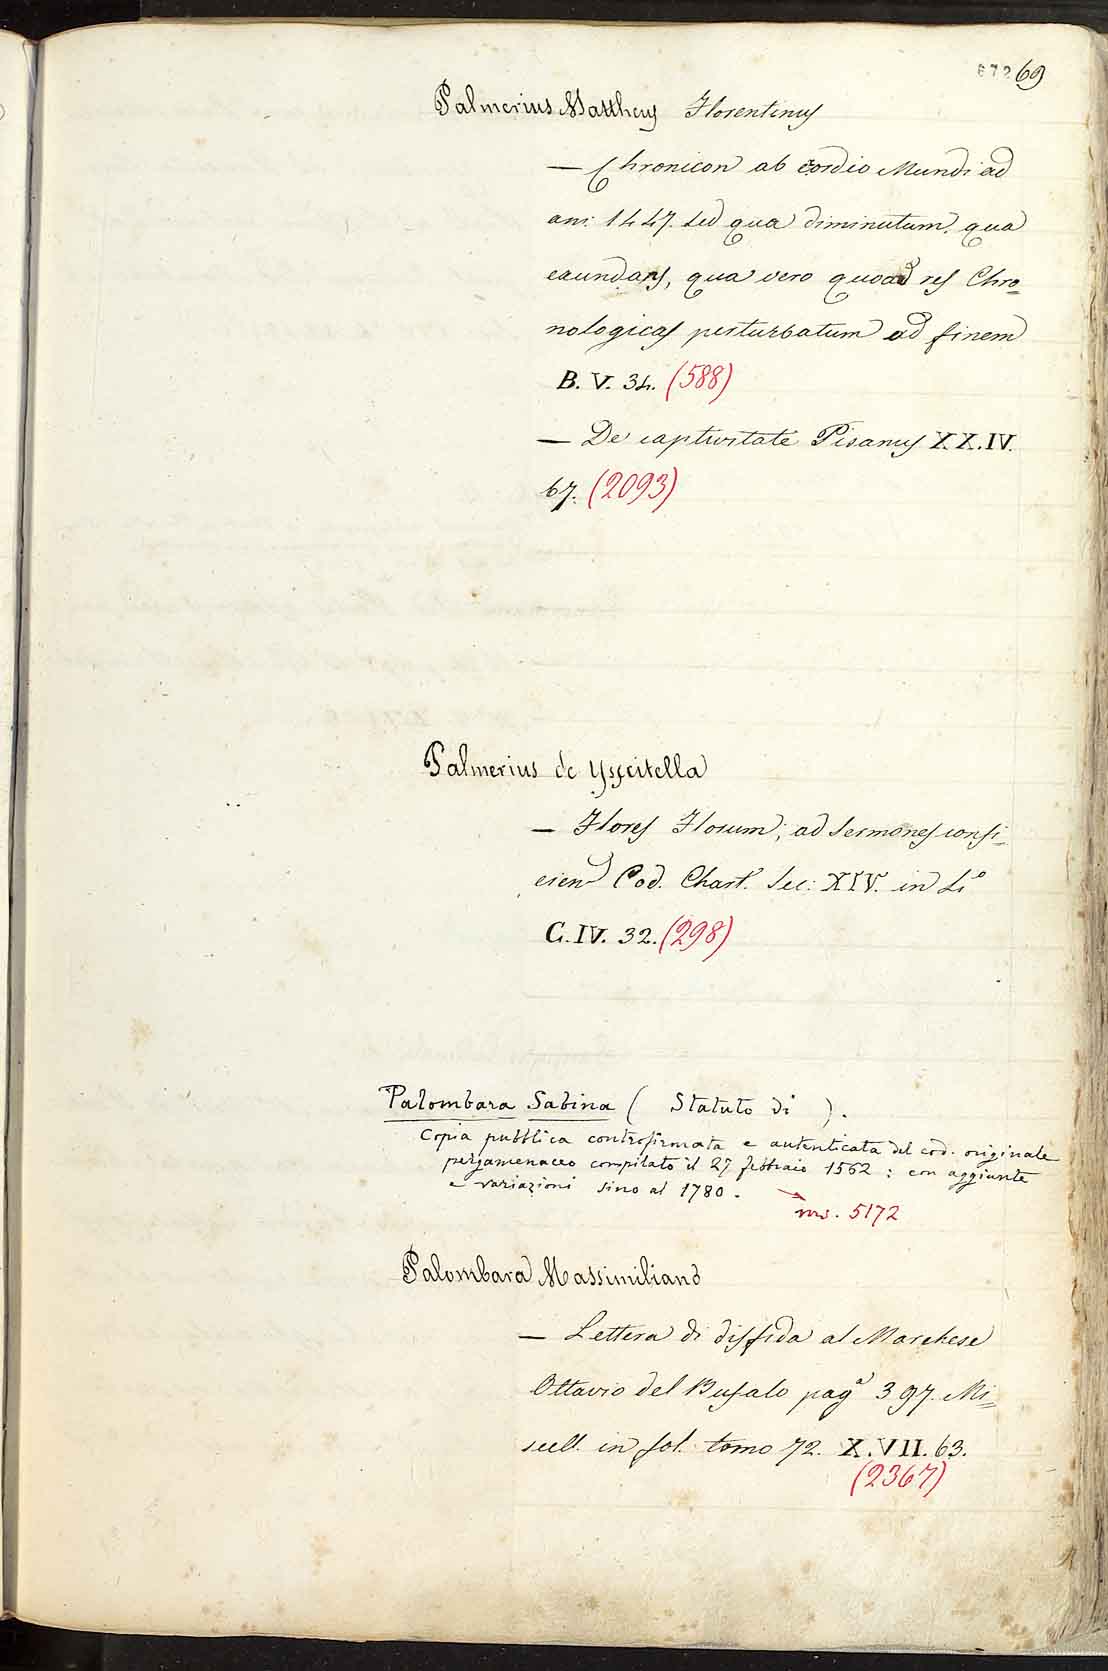 672 69
Palmerius Mattheus Florentinus
— Chronicon ab exordio Mundi ad
an: 1447. sed qua diminutum, qua
exundans, qua vero quoad res Chro=
nologicas perturbatum ad finem
B. V. 34. (588)
— De captivitate Pisarum XX.IV.
67. (2093)
Palmerius de Ysscitella
— Flores Florum, ad Sermones confi=
ciend Cod. Chart. Sec: XIV. in 4º
C. IV. 32. (298)
Palombara Sabina ( Statuto di ).
Copia pubblica controfirmata e autenticata del cod. originale
pergamenaceo compilato il 27 febbraio 1562 : con aggiunte
e variazioni sino al 1780.
ms. 5172
Palombara Massimiliano
— Lettera di disfida al Marchese
Ottavio del Bufalo pagª 397. Mi=
scell. in fol. tomo 72. X. VII. 63.
(2367)